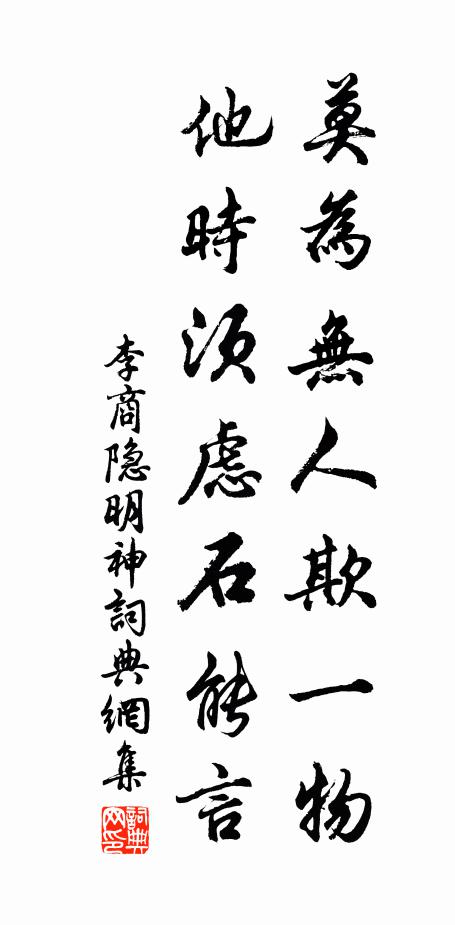 莫為無人欺一物
他時須慮石能言
李商隐明神詞典網集
詞典
网印